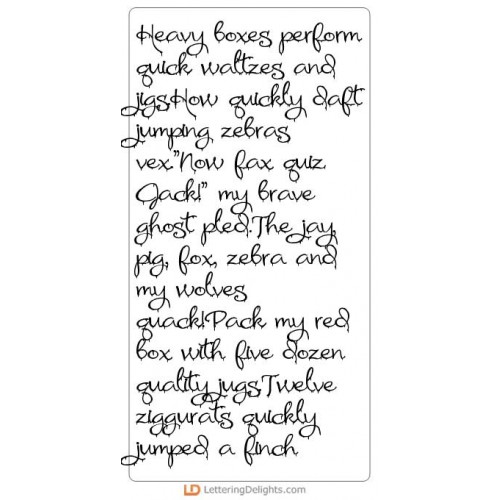 Heavy boxes perform
quick waltzes and
jigs.How quickly daft
jumping zebras
vex."Now fax quiz
Jack!" my brave
ghost pled.The jay,
pig, fox, zebra and
my wolves
quack!Pack my red
box with five dozen
quality jugs.Twelve
ziggurats quickly
jumped a finch
LD LetteringDelights.com